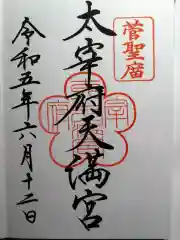 菅聖廟
太宰府天満宮
令和五年六月十二日